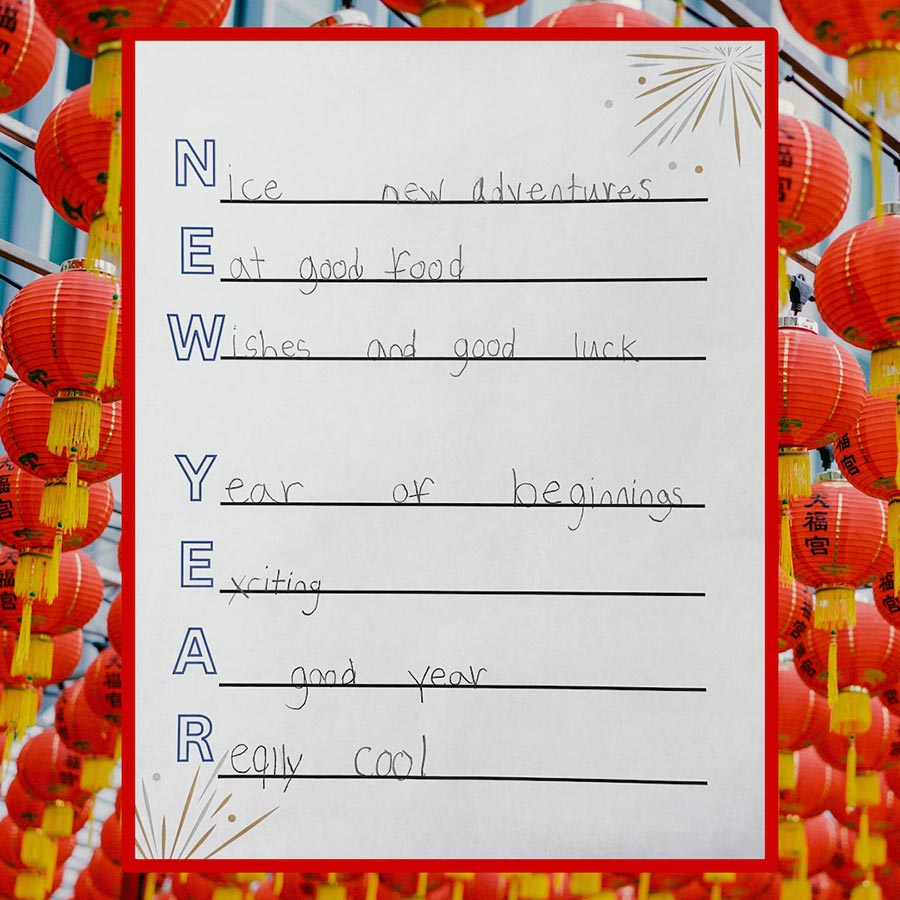 Nice new adventures
Eat good food
Wishes and good luck
Year of beginnings
Exriting
A good year
Really cool
大福宮